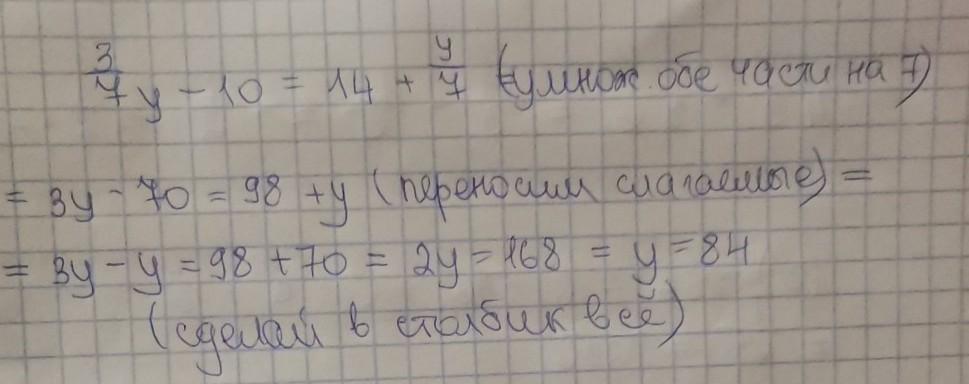 3/7 y - 10 = 14 + y/7 (умнож. обе части на 7)
= 3y - 70 = 98 + y (переносим слагаемые) =
= 3y - y = 98 + 70 = 2y = 168 = y = 84
(сделай в столбик всё)